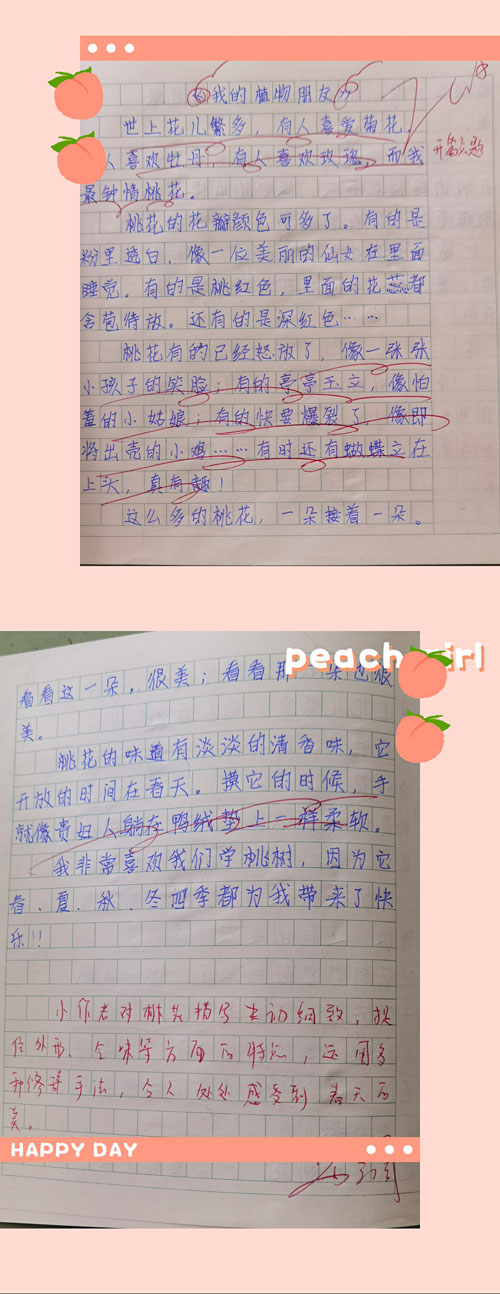 《我的植物朋友》
世上花儿繁多，有人喜爱菊花，
人喜欢牡丹，有人喜欢玫瑰，而我
开篇点题
最钟情桃花。
桃花的花瓣颜色可多了。有的是
粉里透白，像一位美丽的仙女在里面
睡觉。有的是桃红色，里面的花蕊都
含苞待放。还有的是深红色……
桃花有的已经怒放了，像一张张
小孩子的笑脸；有的亭亭玉立，像怕
羞的小姑娘；有的快要爆裂了，像即
将出壳的小鸡……有时还有蝴蝶立在
上头，真有趣！
这么多的桃花，一朵接着一朵。
peach girl
看看这一朵，很美；看看那一朵也很
美。
桃花的味道有淡淡的清香味，它
开放的时间在春天。摸它的时候，手
就像贵妇人躺在鸭绒垫上一样柔软。
我非常喜欢我们学桃树，因为它
春、夏、秋、冬四季都为我带来了快
乐！！
小作者对桃花描写生动细致，抓
住外形、气味等方面的特点，运用多
种修辞手法，令人处处感受到春天的
美。
HAPPY DAY